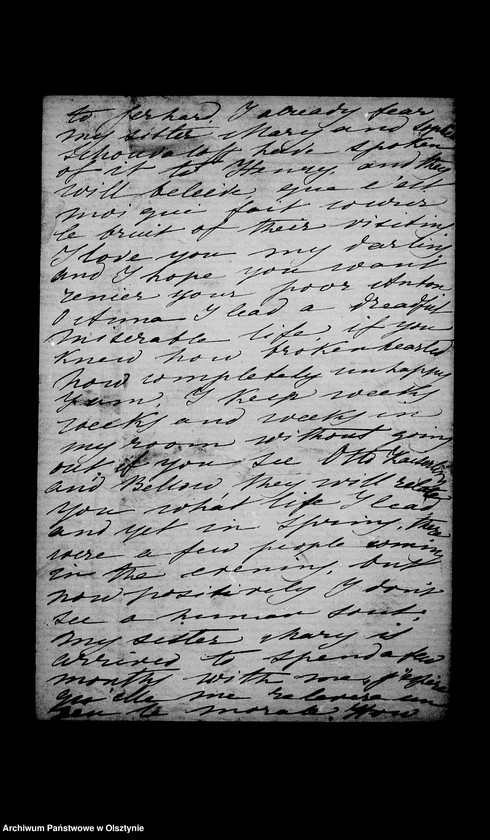 to I already fear
my sister Mary and
have spoken
of it to Henry and they
will beleive que c'est
moi qui fait courir
le bruit of their visiting
I love you my darling
and I hope you wont
renier your poor Anton
I lead a dreadful
miserable life, if you
knew how brokenhearted
how completely unhappy
I keep weeks
weeks and weeks in
my room without going
out, if you see Otto
and Below, they will relate
you what life I lead
and yet in Spring, there
were a few people coming
in the evening, but
now positively I don't
see a human soul.
My sister Mary is
arrived to spend a few
months with me, j'espère
qu'elle me relevera un
peu le moral. How
Archiwum Państwowe w Olsztynie